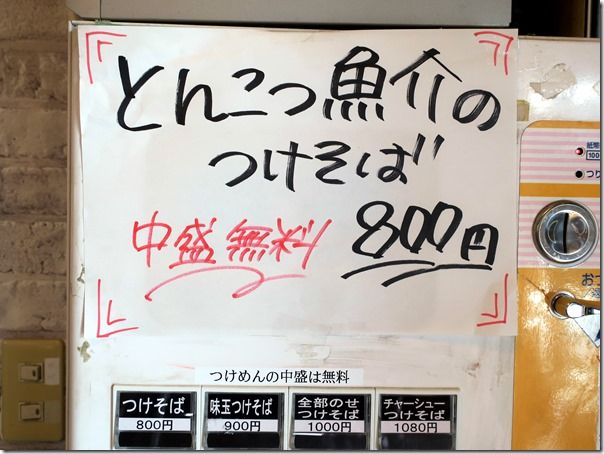 とんこつ魚介の
つけそば
中盛無料 800円
つけめんの中盛は無料
つけそば
800円
味玉つけそば
900円
全部のせ
つけそば
1000円
チャーシュー
つけそば
1080円
紙幣
100
つり
おつ